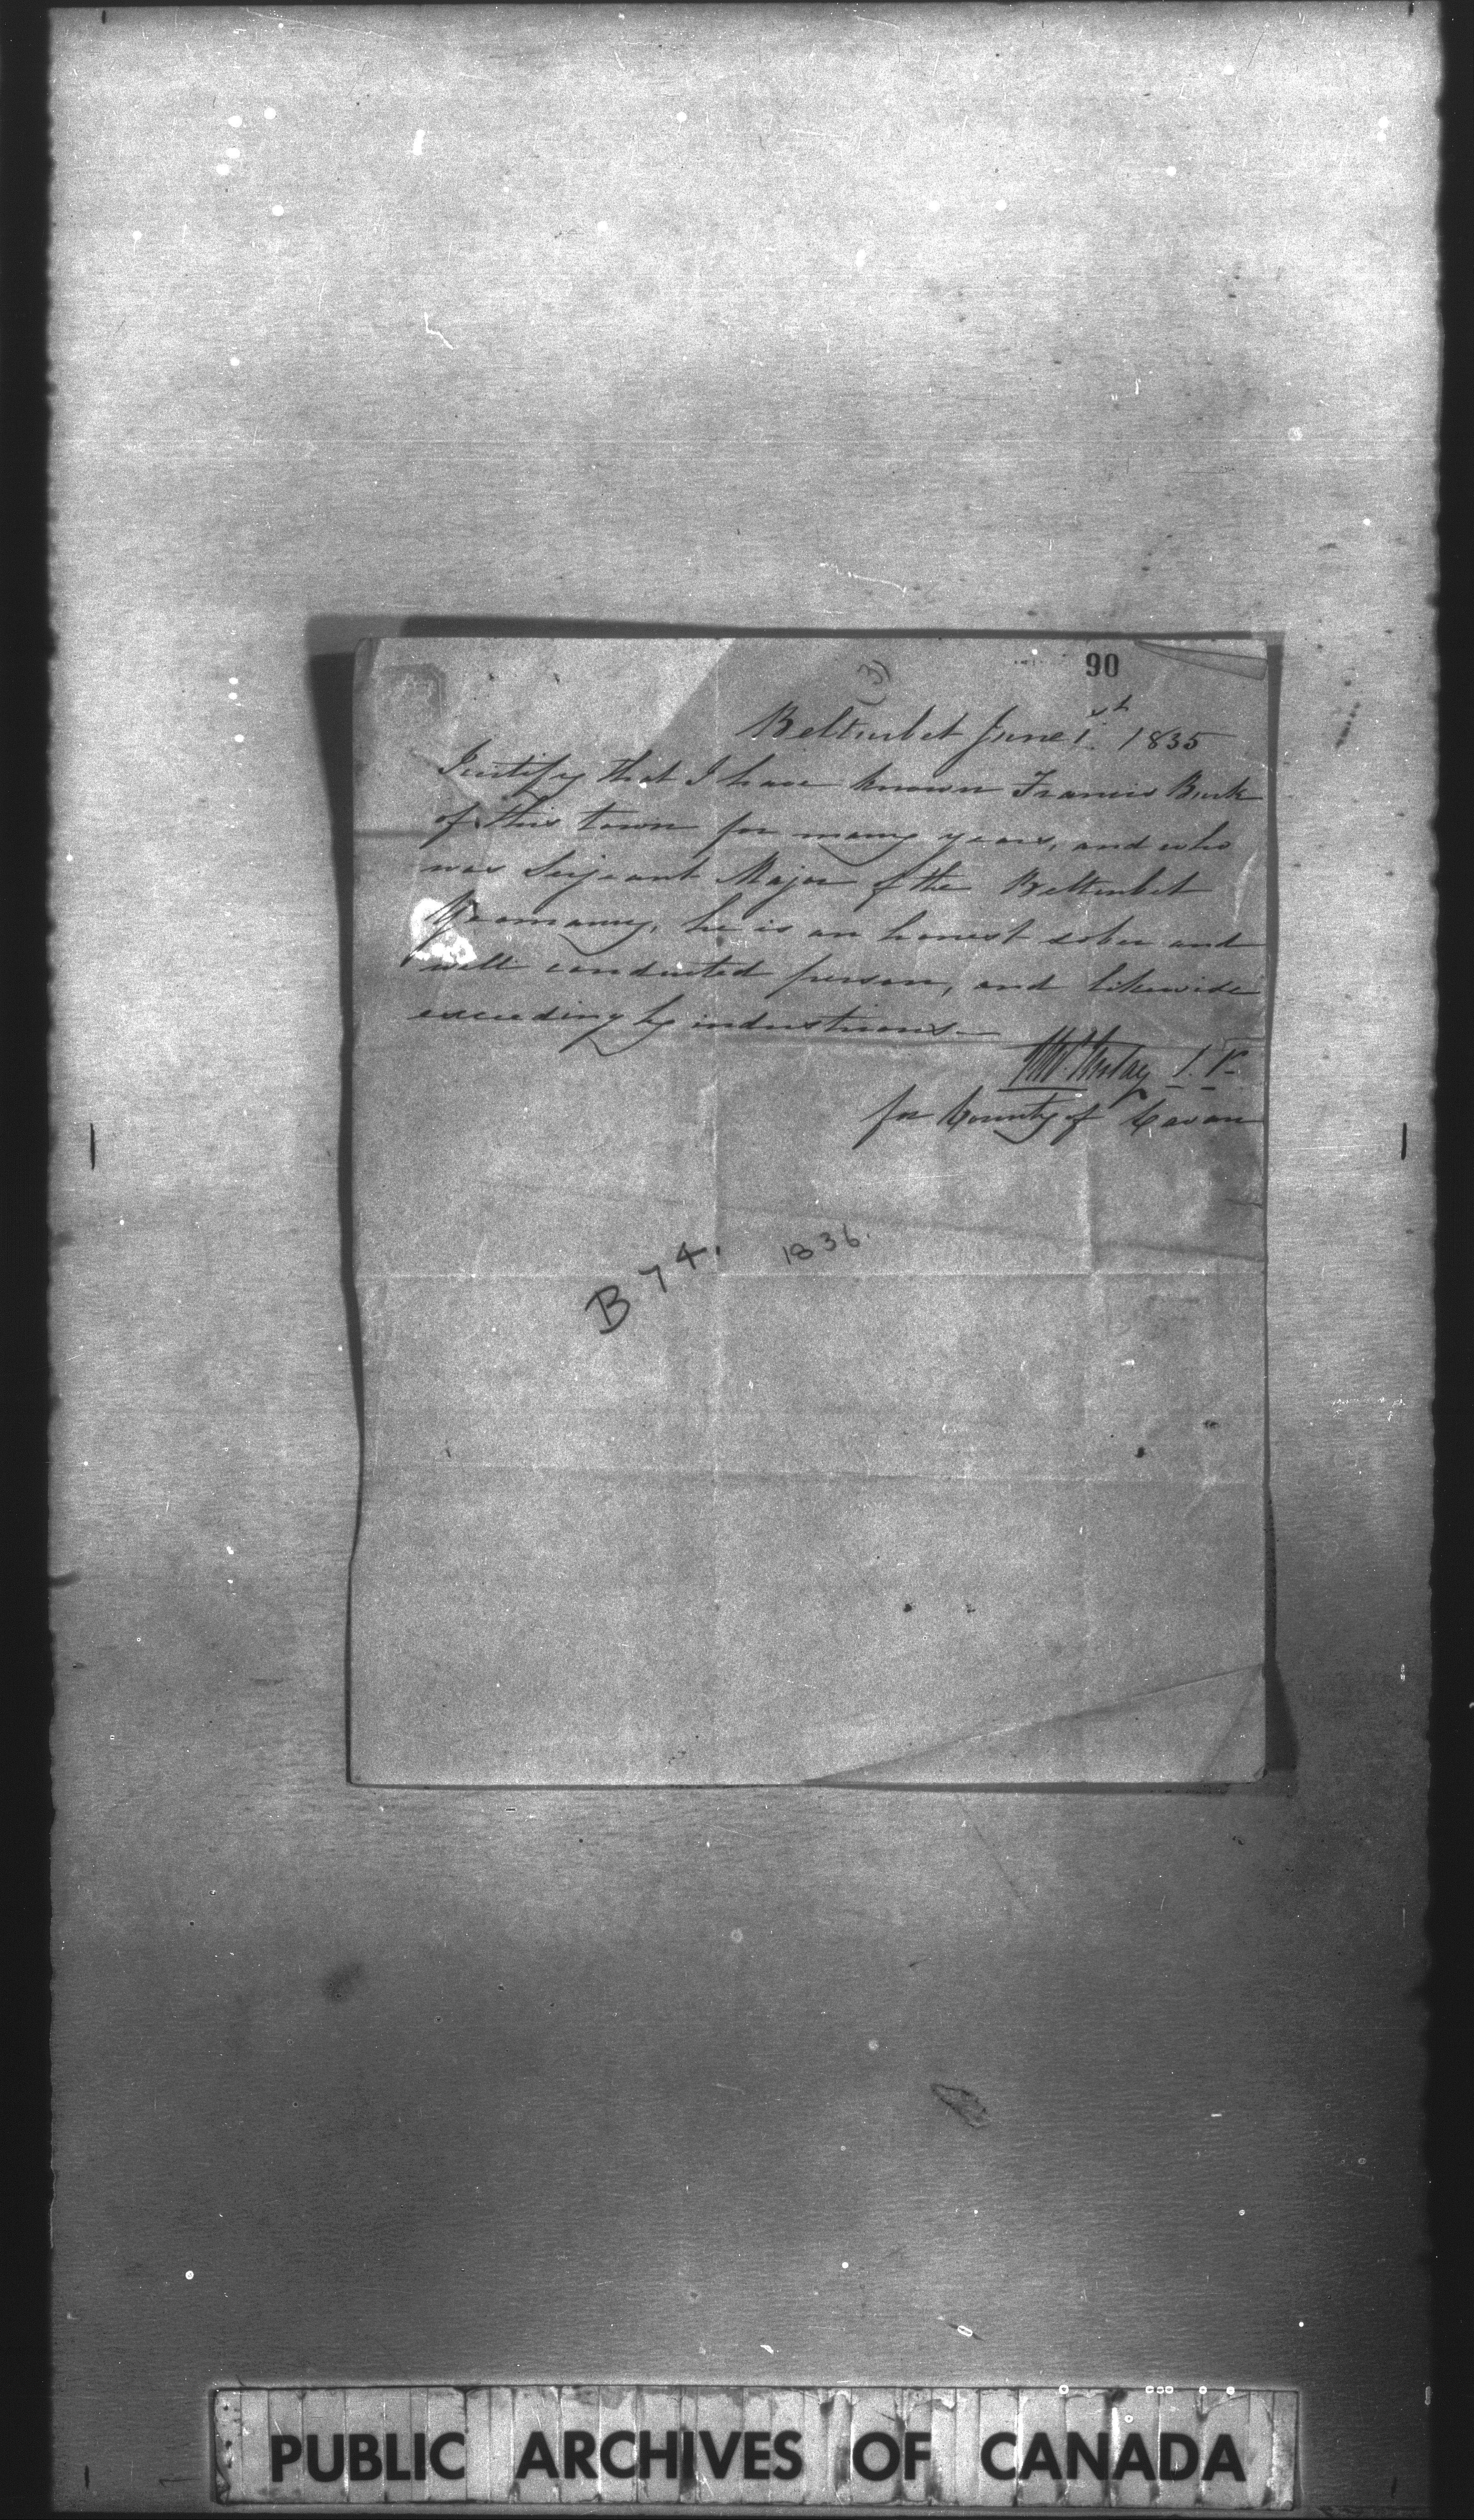 (3)
90
Belturbet June 1st 1835
I certify that I have known Francis Burk
of this town for many years, and who
was Serjeant Major of the Belturbet
Yeomanry, he is an honest sober and
well conducted person, and likewise
exceedingly industrious—
for County of Cavan
B 74. 1836.
PUBLIC ARCHIVES OF CANADA